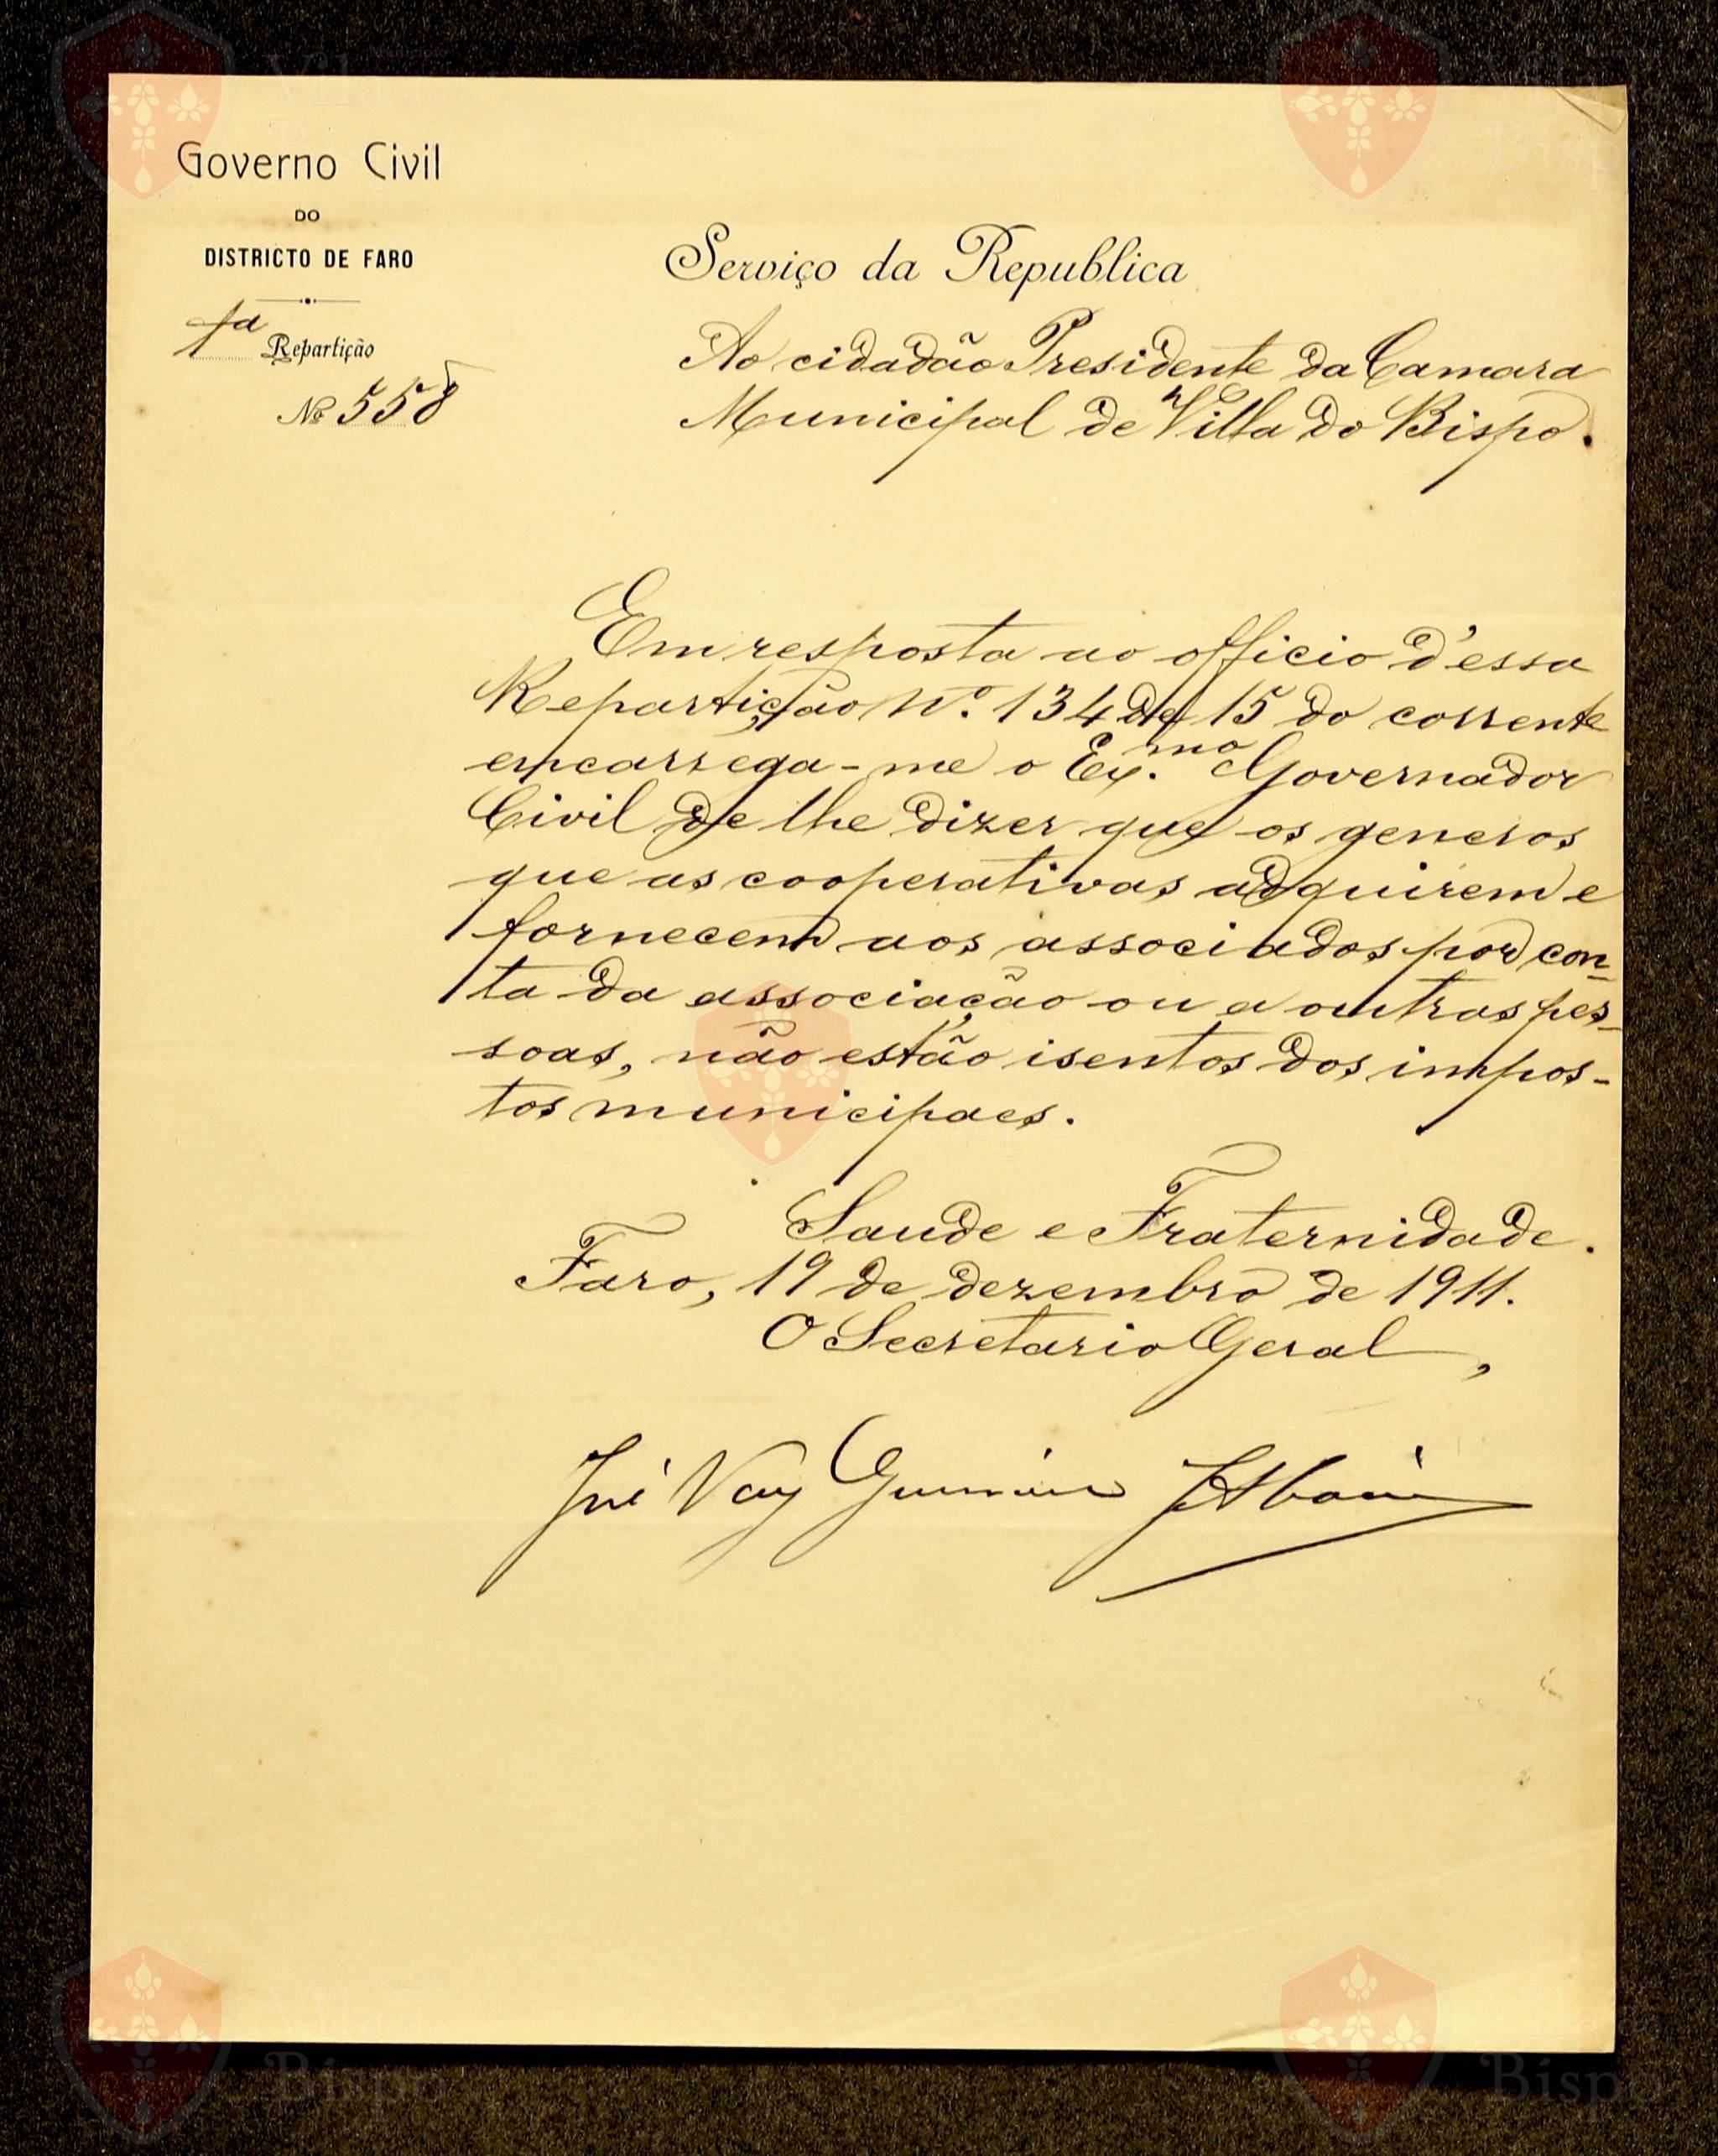 Governo Civil
DO
DISTRICTO DE FARO
1ª Repartição
Nº 558
Serviço da Republica
Ao cidadão Presidente da Camara
Municipal de Villa do Bispo.
Em resposta ao officio d'essa
Repartição Nº. 134 de 15 do corrente
encarrega-me o Ex.mo Governador
Civil de lhe dizer que os generos
que as cooperativas adquirem e
fornecem aos associados por con-
ta da associação ou a outras pes-
soas, não estão isentos dos impos-
tos municipaes.
Saude e Fraternidade.
Faro, 19 de dezembro de 1911.
O Secretario Geral,
José Vaz
Vila
Bispo
Bispo
Bispo